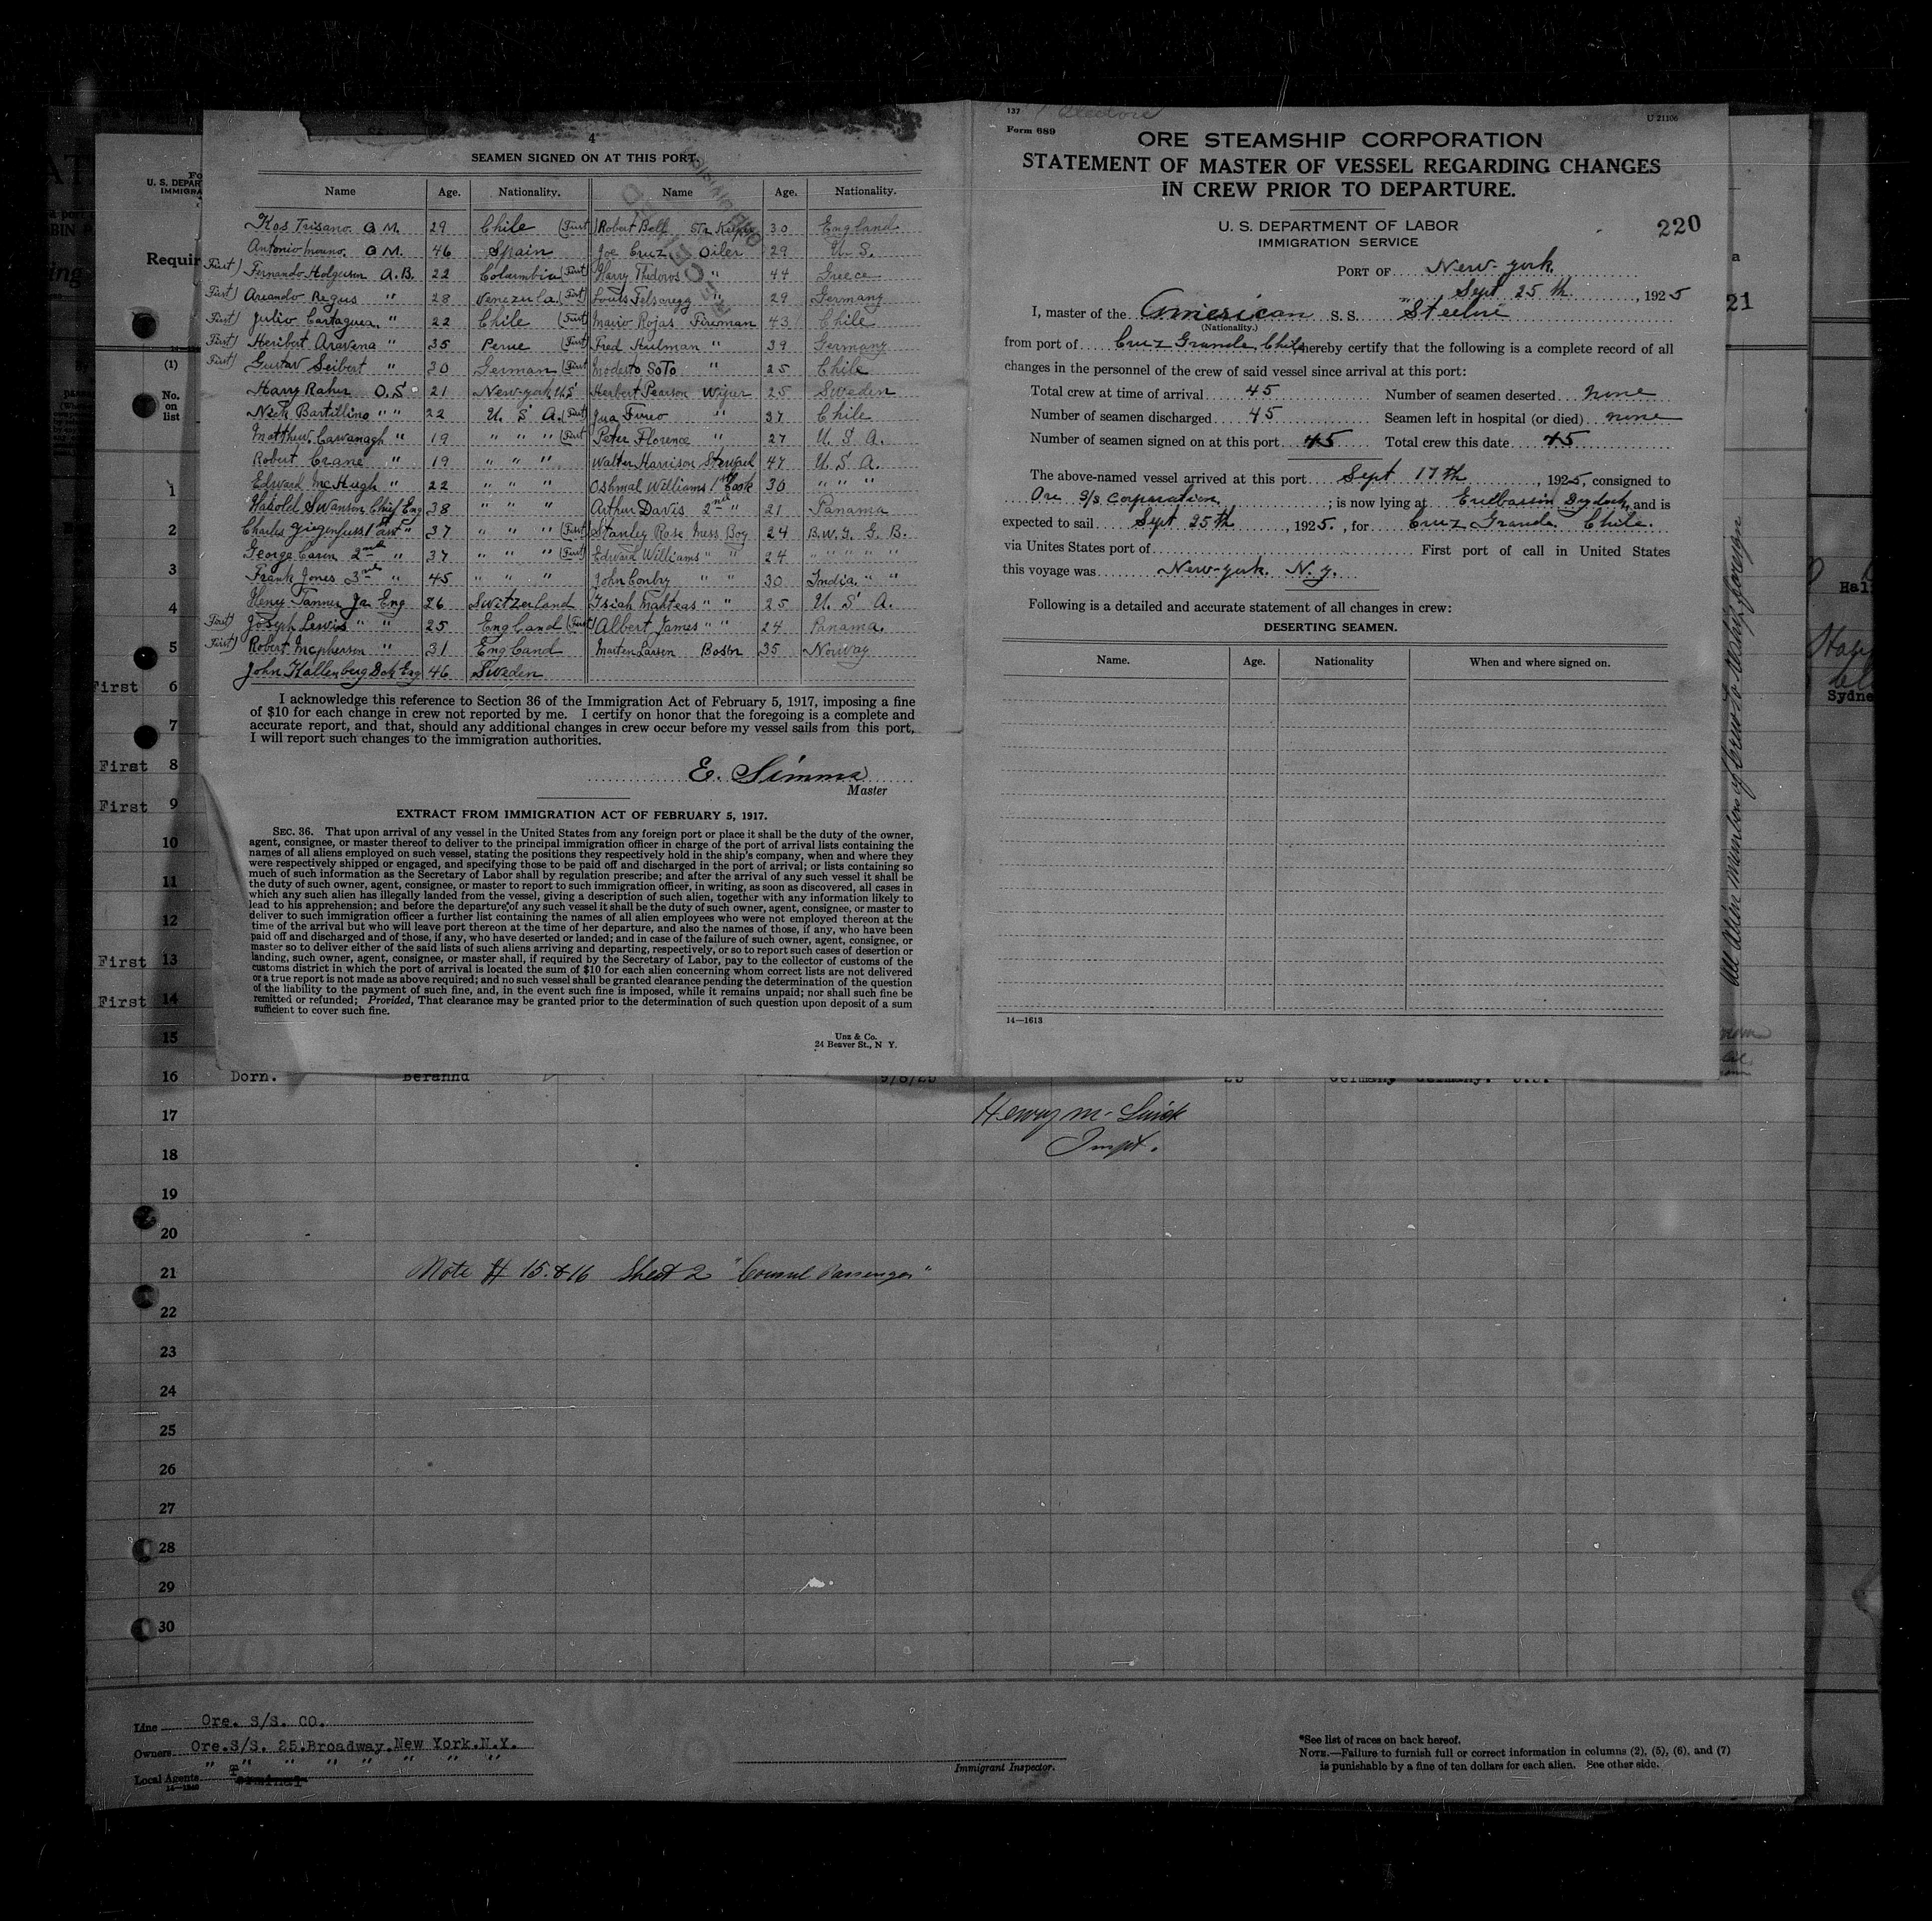 4
SEAMEN SIGNED ON AT THIS PORT.
Name Age. Nationality. Name Age. Nationality.
Kos Trisano. Q M. 29 Chile (First) Robert Bell Str Keeper 30 England
Antonio Moreno. Q M. 46 Spain Joe Cruz Oiler 29 U. S.
First) Fernando Holguson A.B. 22 Columbia (First) Harry Thidoros " 44 Greece
First) Armando Regus " 28 Venezula (First) Louis Felsaregg " 29 Germany
First) Julio Cartaguea, " 22 Chile (First Mario Rojas Fireman 43 Chile
First) Heribert Aravena " 35 Perue (First Fred Hulman " 39 Germany
First) Gustav Seibert " 20 German (First Modesto Soto " 25 Chile
Harry Rahn O.S. 21 New-york U.S Herbert Pearson Wiper 25 Sweden
Nick Bartillino " " 22 U. S A. (First Jua Funeo " 37 Chile
Matthew Cavanagh " 19 " " " (First Peter Florence " 27 U. S A.
Robert Crane " 19 " " " Walter Harrison Steward 47 U. S A.
Edward McHugh " 22 " " " Oshmal Williams 1st Cook 30 " " "
Harold Swanson Chief Eng 38 " " " Arthur Davis 2nd " 21 Panama
Charles Ziegenfuss 1st Ast " 37 " " " (First Stanley Rose Mess Boy 24 B.W.I. G. B.
George Carin 2nd " 37 " " " (First Edward Williams " " 24 " " " " "
Frank Jones 3rd " 45 " " " John Conby " " 30 India. " "
Heny Tanner Jr. Eng 26 Switzerland Isiah Mahteas " " 25 U. S A.
First) Joseph Lewis " " 25 England (First) Albert James " " 24 Panama.
First) Robert Mcpherson " 31 England Marten Larsen Bosen 35 Norway
John Hallenberg Dck Eng 46 Sweden
I acknowledge this reference to Section 36 of the Immigration Act of February 5, 1917, imposing a fine
of $10 for each change in crew not reported by me. I certify on honor that the foregoing is a complete and
accurate report, and that, should any additional changes in crew occur before my vessel sails from this port,
I will report such changes to the immigration authorities.
E. Simms
Master
EXTRACT FROM IMMIGRATION ACT OF FEBRUARY 5, 1917.
SEC. 36. That upon arrival of any vessel in the United States from any foreign port or place it shall be the duty of the owner,
agent, consignee, or master thereof to deliver to the principal immigration officer in charge of the port of arrival lists containing the
names of all aliens employed on such vessel, stating the positions they respectively hold in the ship's company, when and where they
were respectively shipped or engaged, and specifying those to be paid off and discharged in the port of arrival; or lists containing so
much of such information as the Secretary of Labor shall by regulation prescribe; and after the arrival of any such vessel it shall be
the duty of such owner, agent, consignee, or master to report to such immigration officer, in writing, as soon as discovered, all cases in
which any such alien has illegally landed from the vessel, giving a description of such alien, together with any information likely to
lead to his apprehension; and before the departure of any such vessel it shall be the duty of such owner, agent, consignee, or master to
deliver to such immigration officer a further list containing the names of all alien employees who were not employed thereon at the
time of the arrival but who will leave port thereon at the time of her departure, and also the names of those, if any, who have been
paid off and discharged and of those, if any, who have deserted or landed; and in case of the failure of such owner, agent, consignee, or
master so to deliver either of the said lists of such aliens arriving and departing, respectively, or so to report such cases of desertion or
landing, such owner, agent, consignee, or master shall, if required by the Secretary of Labor, pay to the collector of customs of the
customs district in which the port of arrival is located the sum of $10 for each alien concerning whom correct lists are not delivered
or a true report is not made as above required; and no such vessel shall be granted clearance pending the determination of the question
of the liability to the payment of such fine, and, in the event such fine is imposed, while it remains unpaid; nor shall such fine be
remitted or refunded; Provided, That clearance may be granted prior to the determination of such question upon deposit of a sum
sufficient to cover such fine.
Unz & Co.
24 Beaver St., N Y.
137
Form 689
U 21106
ORE STEAMSHIP CORPORATION
STATEMENT OF MASTER OF VESSEL REGARDING CHANGES
IN CREW PRIOR TO DEPARTURE.
U. S. DEPARTMENT OF LABOR
IMMIGRATION SERVICE
220
PORT OF New-york.
Sept 25 th, 1925
I, master of the American S. S. "Steelore"
(Nationality.)
from port of Cruz Grande, Chile hereby certify that the following is a complete record of all
changes in the personnel of the crew of said vessel since arrival at this port:
Total crew at time of arrival 45 Number of seamen deserted none
Number of seamen discharged 45 Seamen left in hospital (or died) none
Number of seamen signed on at this port 45 Total crew this date 45
The above-named vessel arrived at this port Sept 17th, 1925, consigned to
Ore S/S Corporation; is now lying at Eriebassin Drydock, and is
expected to sail Sept 25th, 1925, for Cruz Grande Chile.
via Unites States port of First port of call in United States
this voyage was New-york. N.y.
Following is a detailed and accurate statement of all changes in crew:
DESERTING SEAMEN.
Name. Age. Nationality When and where signed on.
14—1613
U. S. DEPAR
IMMIGRA
Requir
21
(1)
No.
on
list
1
2
3
4
5
First 6
7
First 8
First 9
10
11
12
First 13
First 14
15
16 Dorn. Beranna 9/8/25 25 Germany Germany.
17 Henry M- Quick
18 Inspt.
19
20
21 Note # 15 & 16 Sheet 2 "Consul Passenger"
22
23
24
25
26
27
28
29
30
Line Ore. S/S. CO.
Owners Ore.S/S. 25.Broadway.New York.N.Y.
Local Agents " " " " " " " "
14—1240
Immigrant Inspector.
*See list of races on back hereof.
NOTE.—Failure to furnish full or correct information in columns (2), (5), (6), and (7)
is punishable by a fine of ten dollars for each alien. See other side.